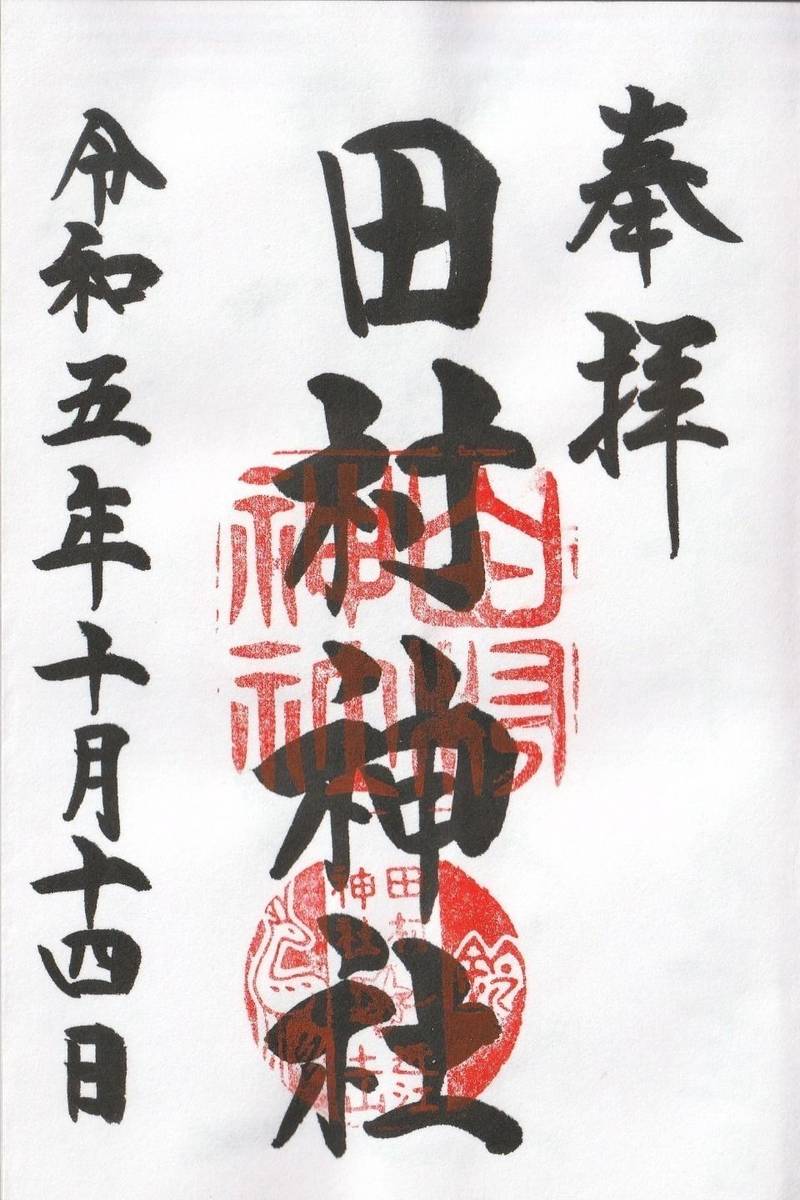 奉拝
田村神社
令和五年十月十四日
田村神社
田村神社
鈴